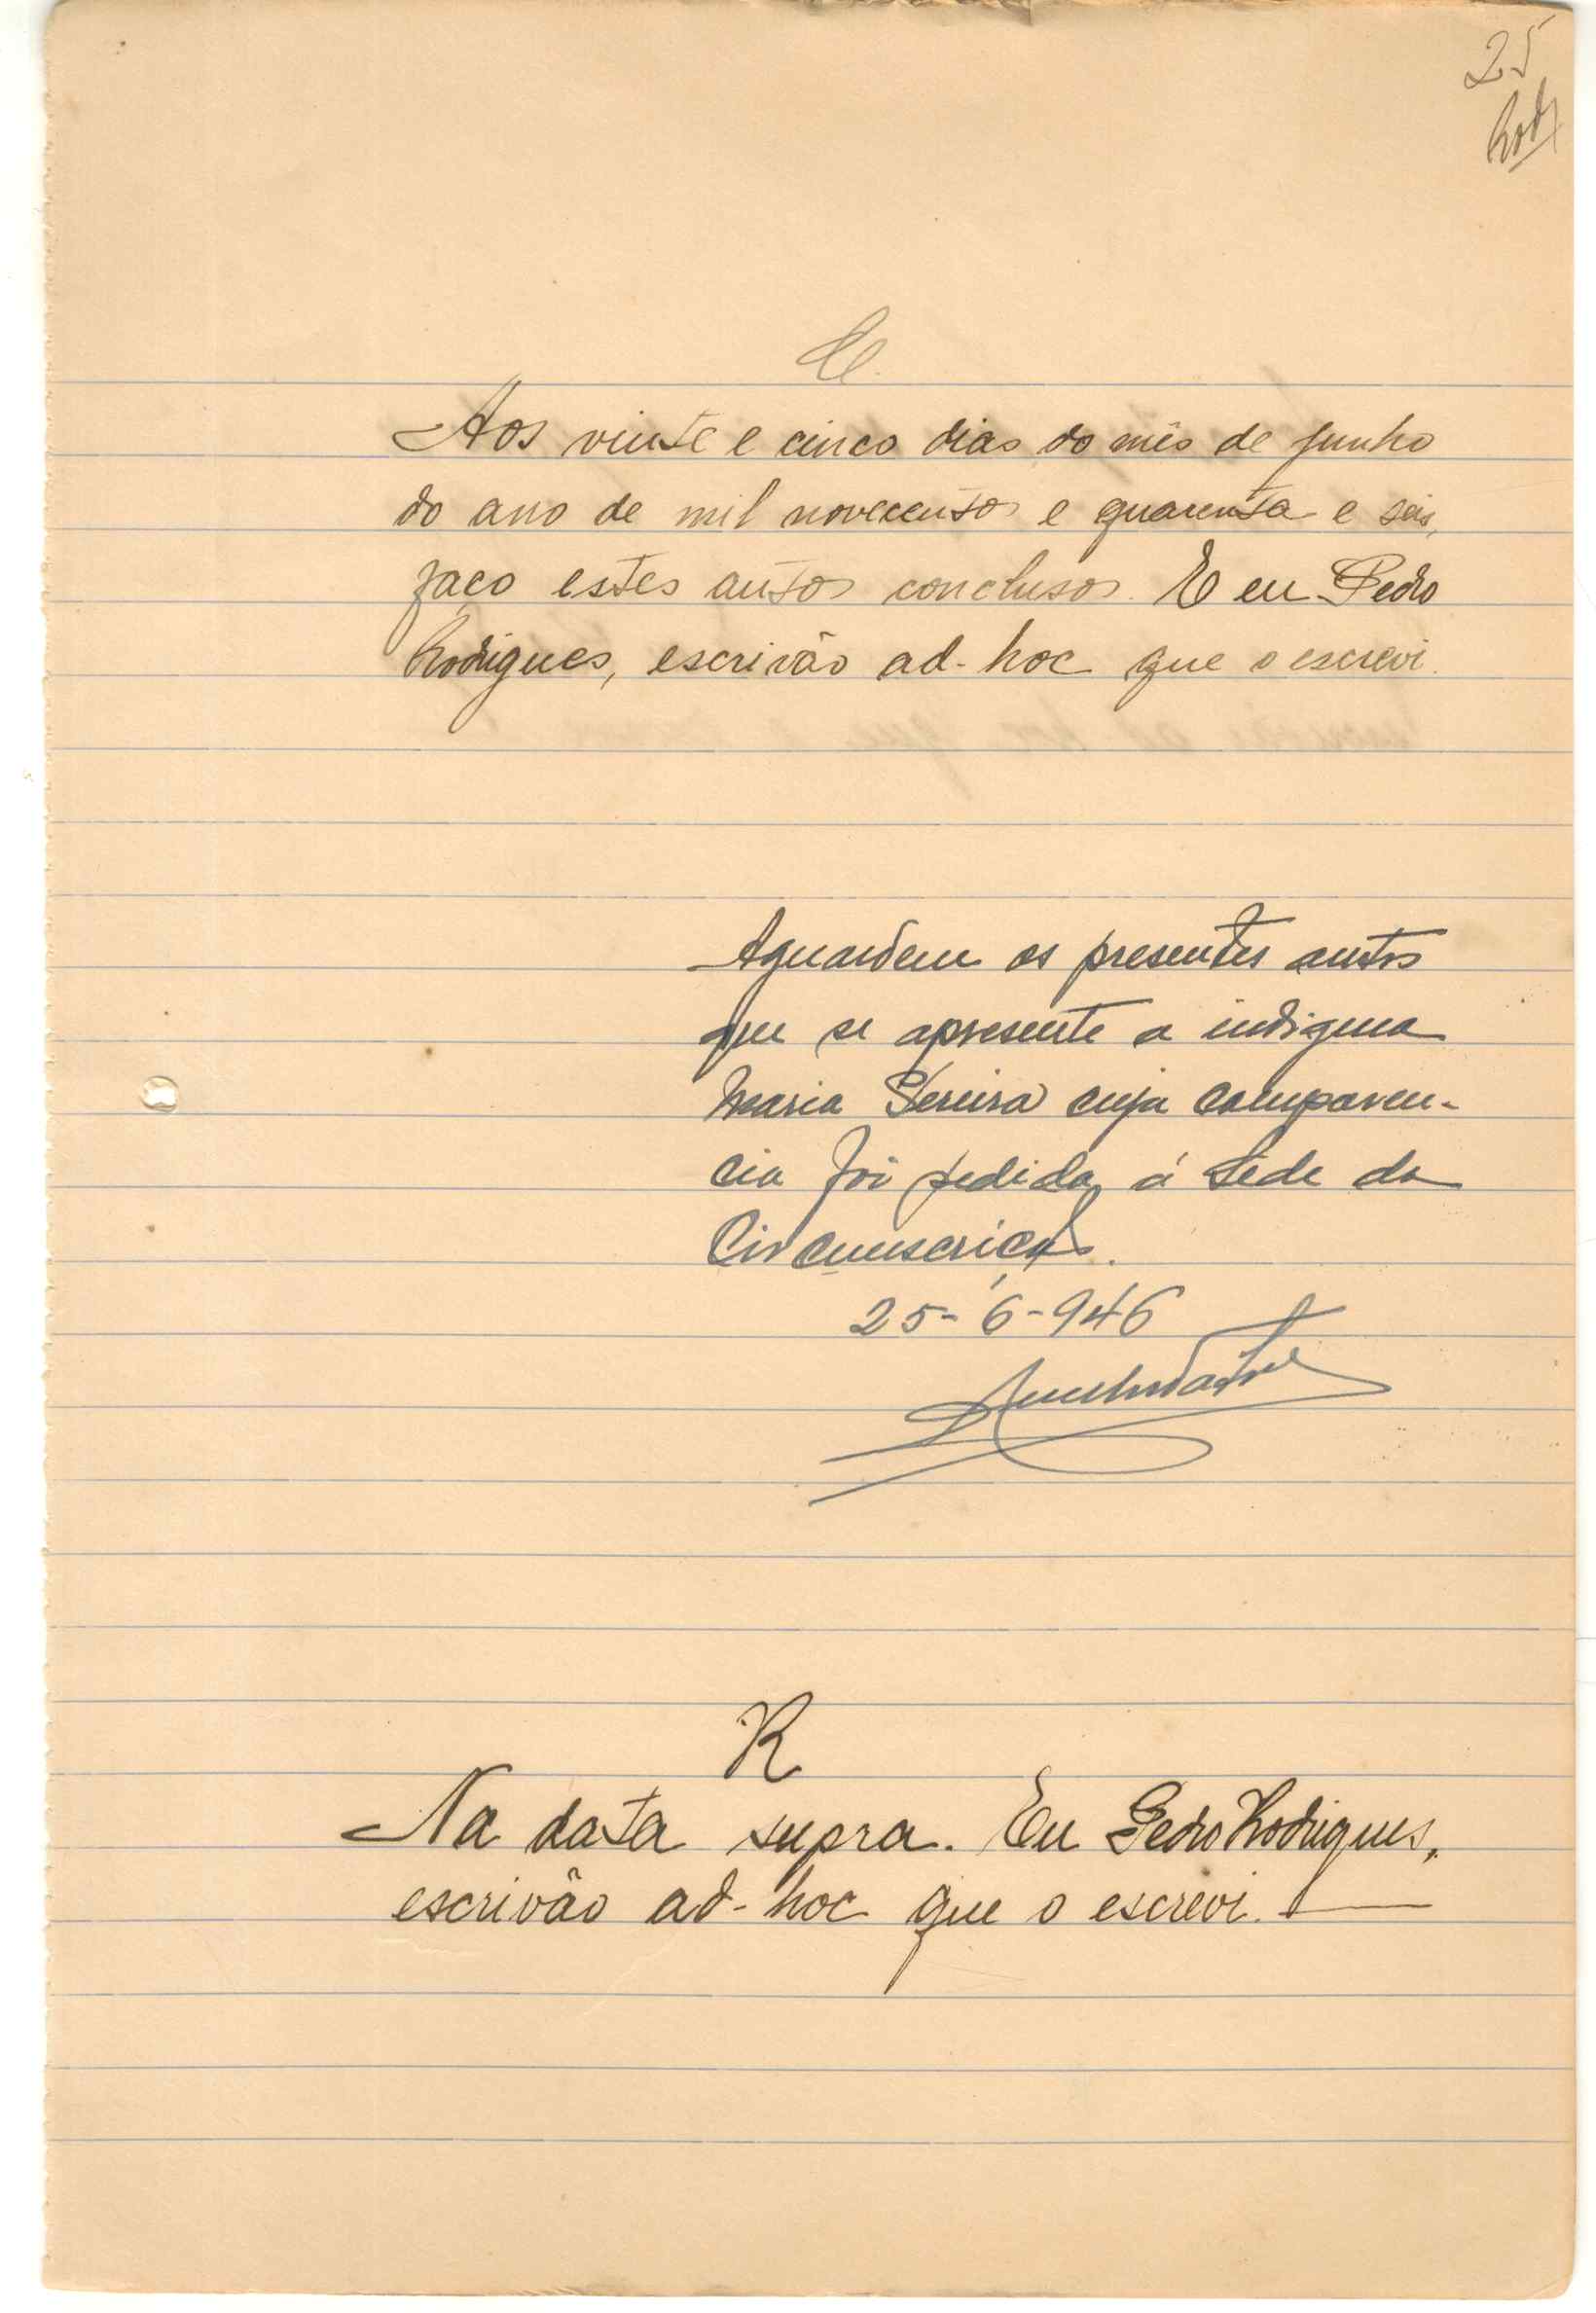 25
Rodx
Cl.
Aos vinte e cinco dias do mês de Junho
do ano de mil novecentos e quarenta e seis,
faço estes autos conclusos. E eu Pedro
Rodrigues, escrivão ad-hoc que o escrevi.
Aguardem os presentes autos
que se apresente a indigena
Maria Pereira cuja comparen-
cia foi pedida á Sede da
Circunscrição.
25-6-946
R
Na data supra. Eu Pedro Rodrigues,
escrivão ad-hoc que o escrevi.